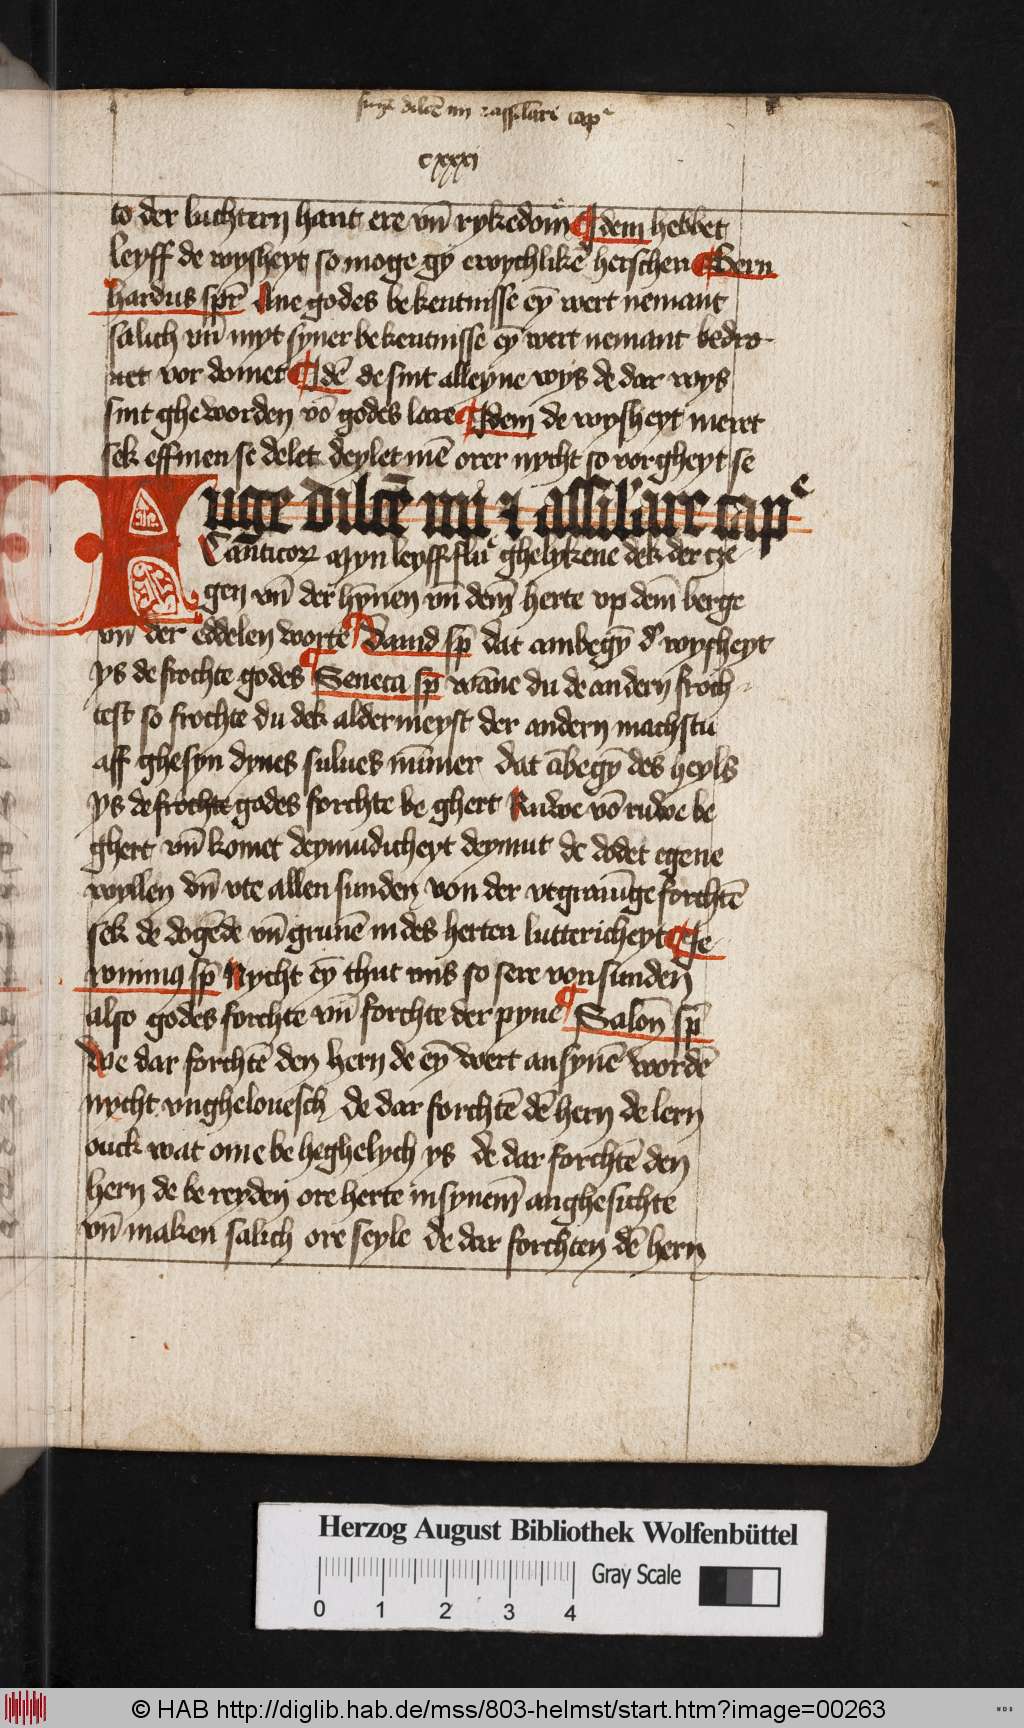 fuge dilcē mi ⁊ assilare capᵉ
cxxxi
to der luchtern hant ere vn̄ rykedom̄ ¶ Idem hebbet
leyff de wysheyt so moge gy ewychlikē herschen ¶ Bern
hardus spr̄ Ane godes bekentnisse ey̅ wert nemant
salich vn̄ myt syner bekentnisse ey̅ wert nemant bedro-
uet vor domet ¶ Idē de sint alleyne wys de dar wys
sint gheworden vō godes lare ¶ Idem de wysheyt meret
sek effmen se delet deylet mē orer nycht so vorgheyt se
Fuge dilcē mi ⁊ assilare capᵉ
Canticoꝝ Myn leyff flu ghelykene dek der cze-
gen vn̄ der hynnen vn̄ dem̄ herte vp dem̄ berge
vn̄ der eddelen worte ¶ Dauid sp̄ dat anbegy̅ dʳ wysheyt
ys de frochte godes ¶ Seneca sp̄ wāne du de andern froch-
test so frochte du dek aldermeyst der andern machstu
aff ghesyn dynes sulues nūmer dat ābegy̅ des heyls
ys de frochte godes forchte be ghert Ruwe vō ruwe be
ghert vn̄ komet deymudicheyt deymut de dodet egene
wyllen vn̄ vte allen sunden von der vtgrauūge forchtē
sek de dogēde vn̄ grunē in des herten luttericheyt ¶ Je-
ronimus sp̄ Nycht ey̅ thut vns so sere von sunden
also godes forchte vn̄ forchte der pyne ¶ Salon̄ sp̄
We dar forchtē den hern de ey̅ wert an synē wordē
nycht vnghelouesch de dar forchtē dē hern de lern
ouck wat ome beheghelych ys de dar forchtē den
hern de bereyden ore herte in synem̄ anghesichte
vn̄ maken salich ore seyle de dar forchten dē hern
Herzog August Bibliothek Wolfenbüttel
Gray Scale
0 1 2 3 4
© HAB http://diglib.hab.de/mss/803-helmst/start.htm?image=00263